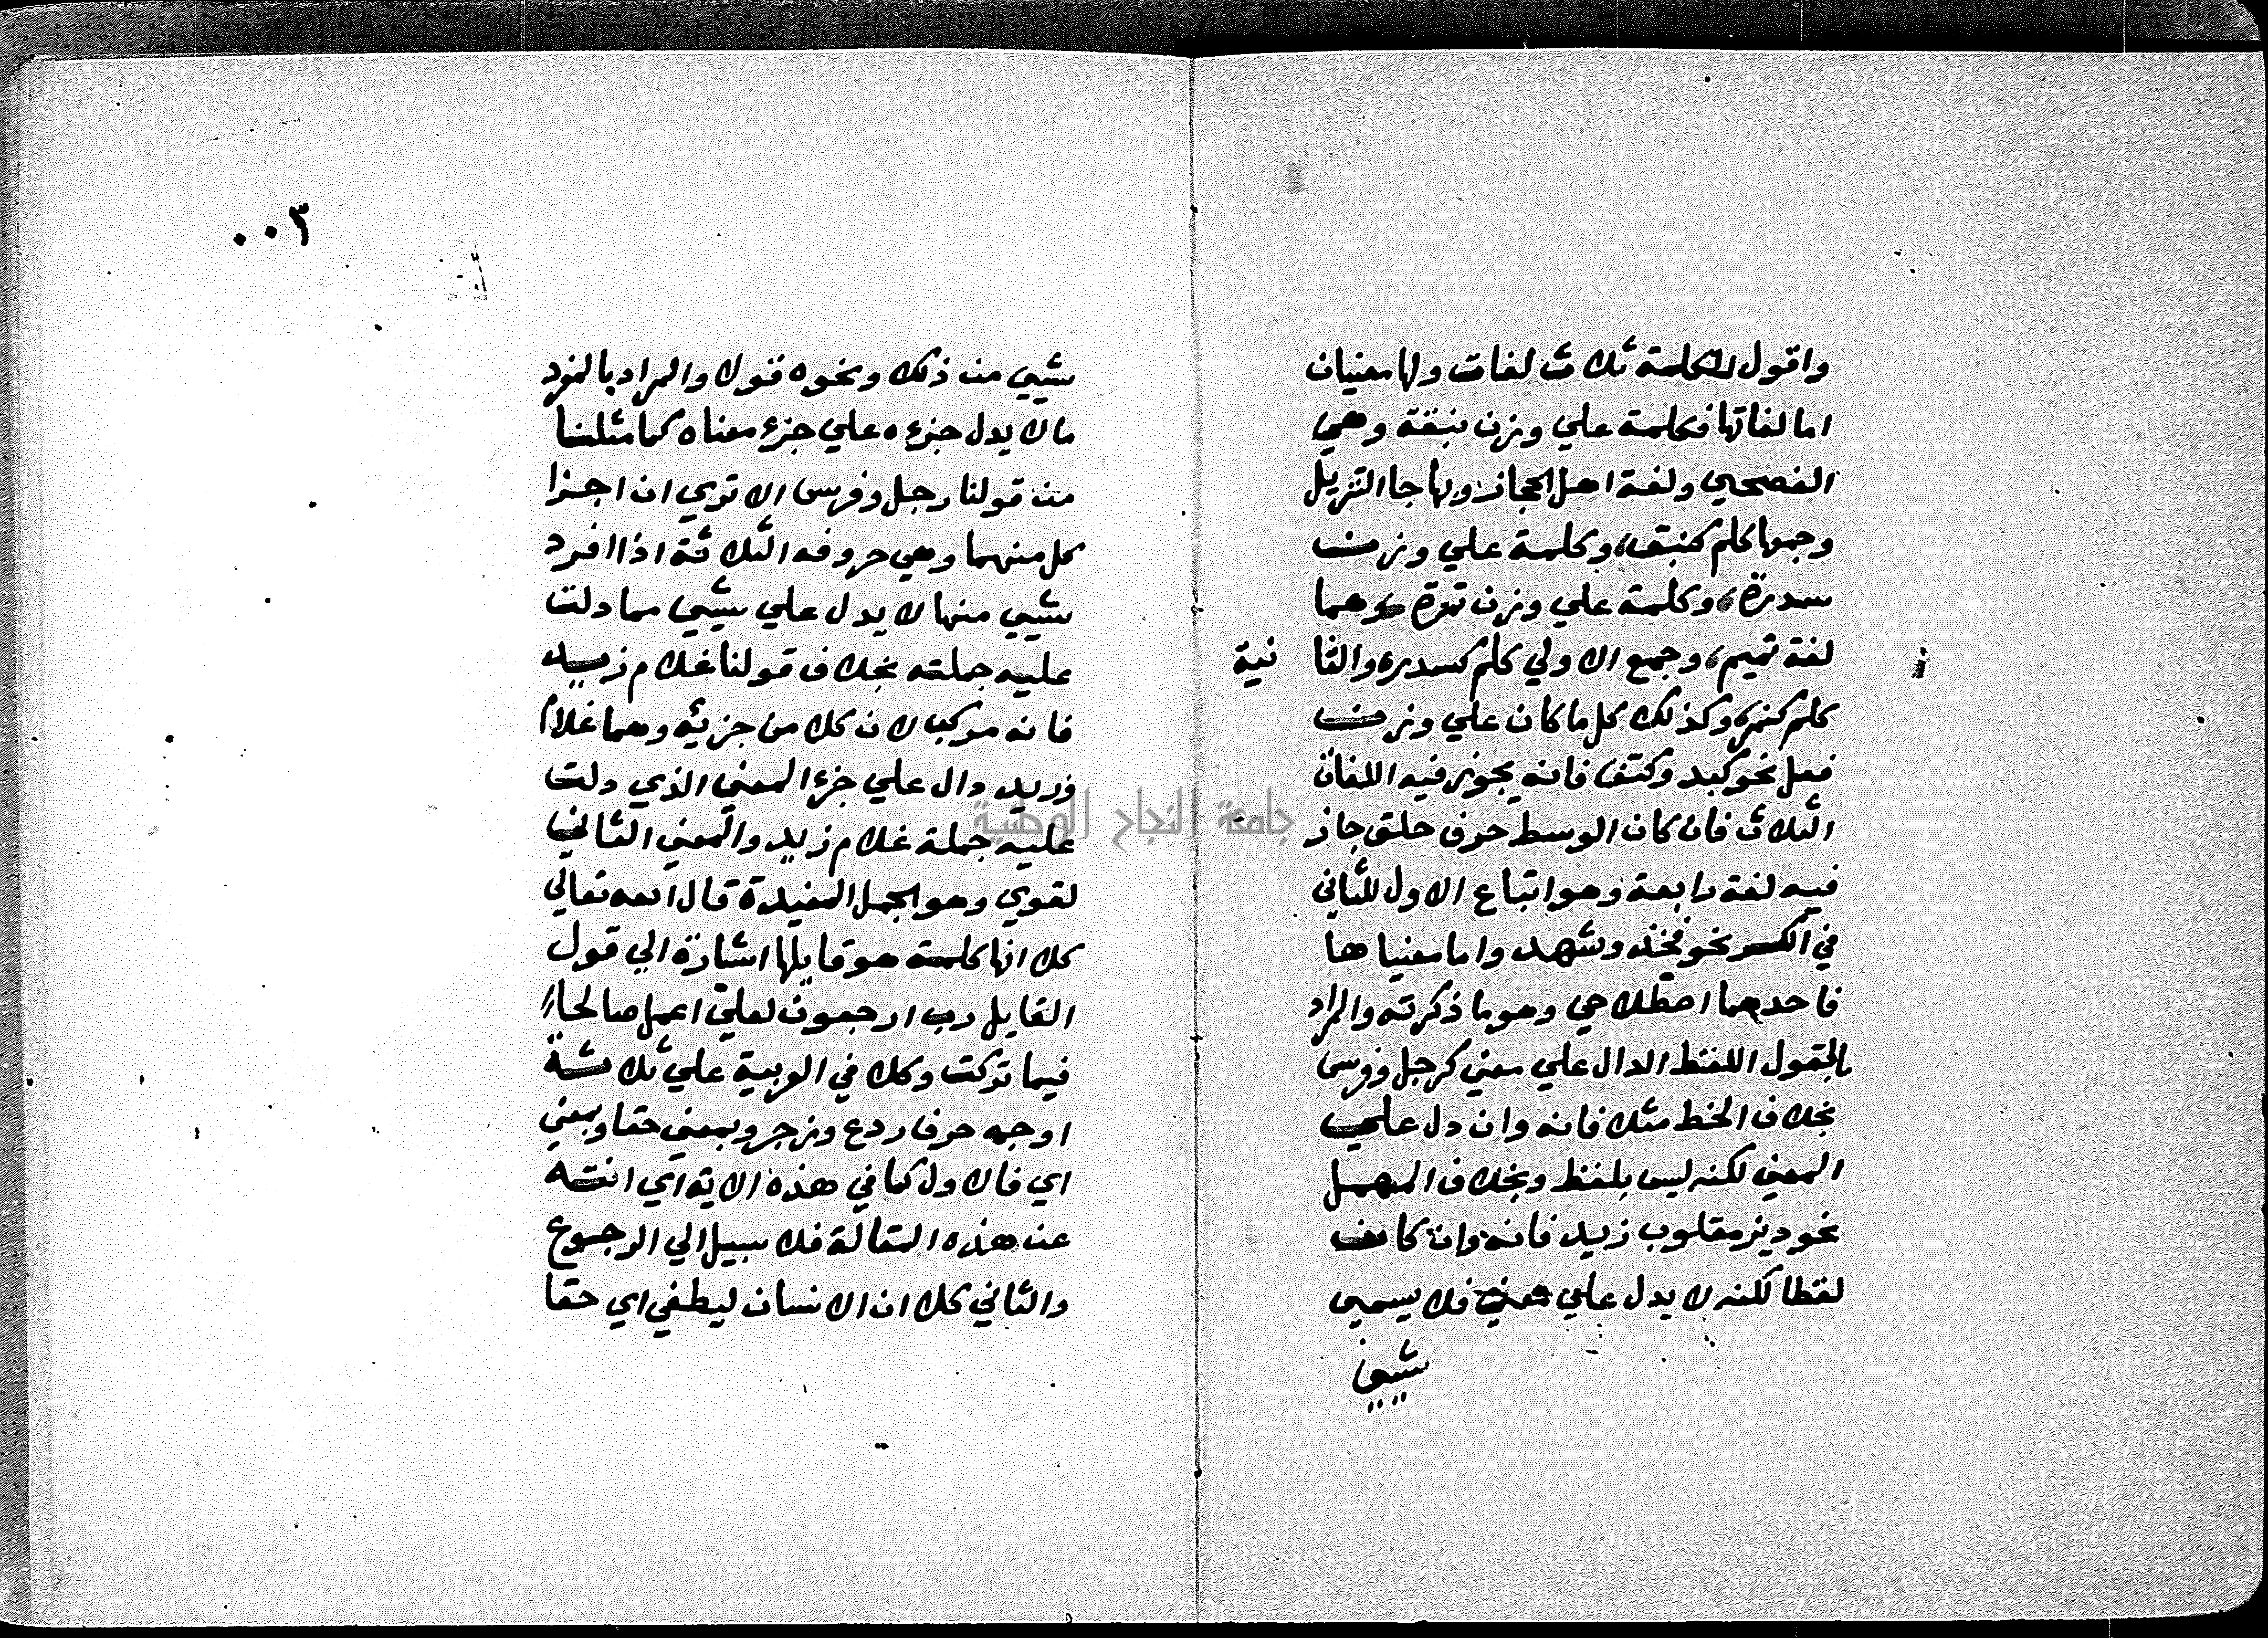 واقول للكلمة ثلاث لغات ولها معنيان
اما لغاتها فكلمة علي وزن نبقة وهي
الفصحي ولغة اهل الحجاز وبها جا التنزيل
وجمعها كلم كنبق، وكلمة علي وزن
سدرة، وكلمة علي وزن تمرة، وهما
لغة تميم، وجمع الاولي كلم كسدر، والثا نية
كلم كتمر، وكذلك كل ما كان علي وزن
فعل نحو كبد وكتف فانه يجوز فيه اللغات
الثلاث فان كان الوسط حرف حلق جاز
فيه لغة رابعة وهو اتباع الاول للثاني
في الكسر نحو فخذ وشهد واما معنيا ها
فاحدهما اصطلاحي وهو ما ذكرته والمراد
بالقول اللفظ الدال علي معني كرجل وفرس
بخلاف الخط مثلا فانه وان دل علي
المعني لكنه ليس بلفظ وبخلاف المهمل
نحو ديز مقلوب زيد فانه وان كان
لفظا لكنه لا يدل علي معني فلا يسمي
شيي
٠٠٣
شيي من ذلك ونحوه قولا والمراد بالمفرد
ما لا يدل جزءه علي جزء معناه كما مثلنا
من قولنا رجل وفرس الا تري ان اجزا
كل منهما وهي حروفه الثلاثة اذا افرد
شيي منها لا يدل علي شيي مما دلت
عليه جملته بخلاف قولنا غلام زيد
فانه مركب لان كلا من جزئيه وهما غلام
وزيد دال علي جزء المعني الذي دلت
عليه جملة غلام زيد والمعني الثاني
لغوي وهو الجمل المفيدة قال الله تعالي
كلا انها كلمة هو قايلها اشارة الي قول
القايل رب ارجعون لعلي اعمل صالحا
فيما تركت وكلا في العربية علي ثلاثة
اوجه حرف ردع وزجر وبمعني حقا وبمعني
اي فالاول كما في هذه الاية اي انته
عن هذه المقالة فلا سبيل الي الرجوع
والثاني كلا ان الانسان ليطغي اي حقا
جامعة النجاح الوطنية